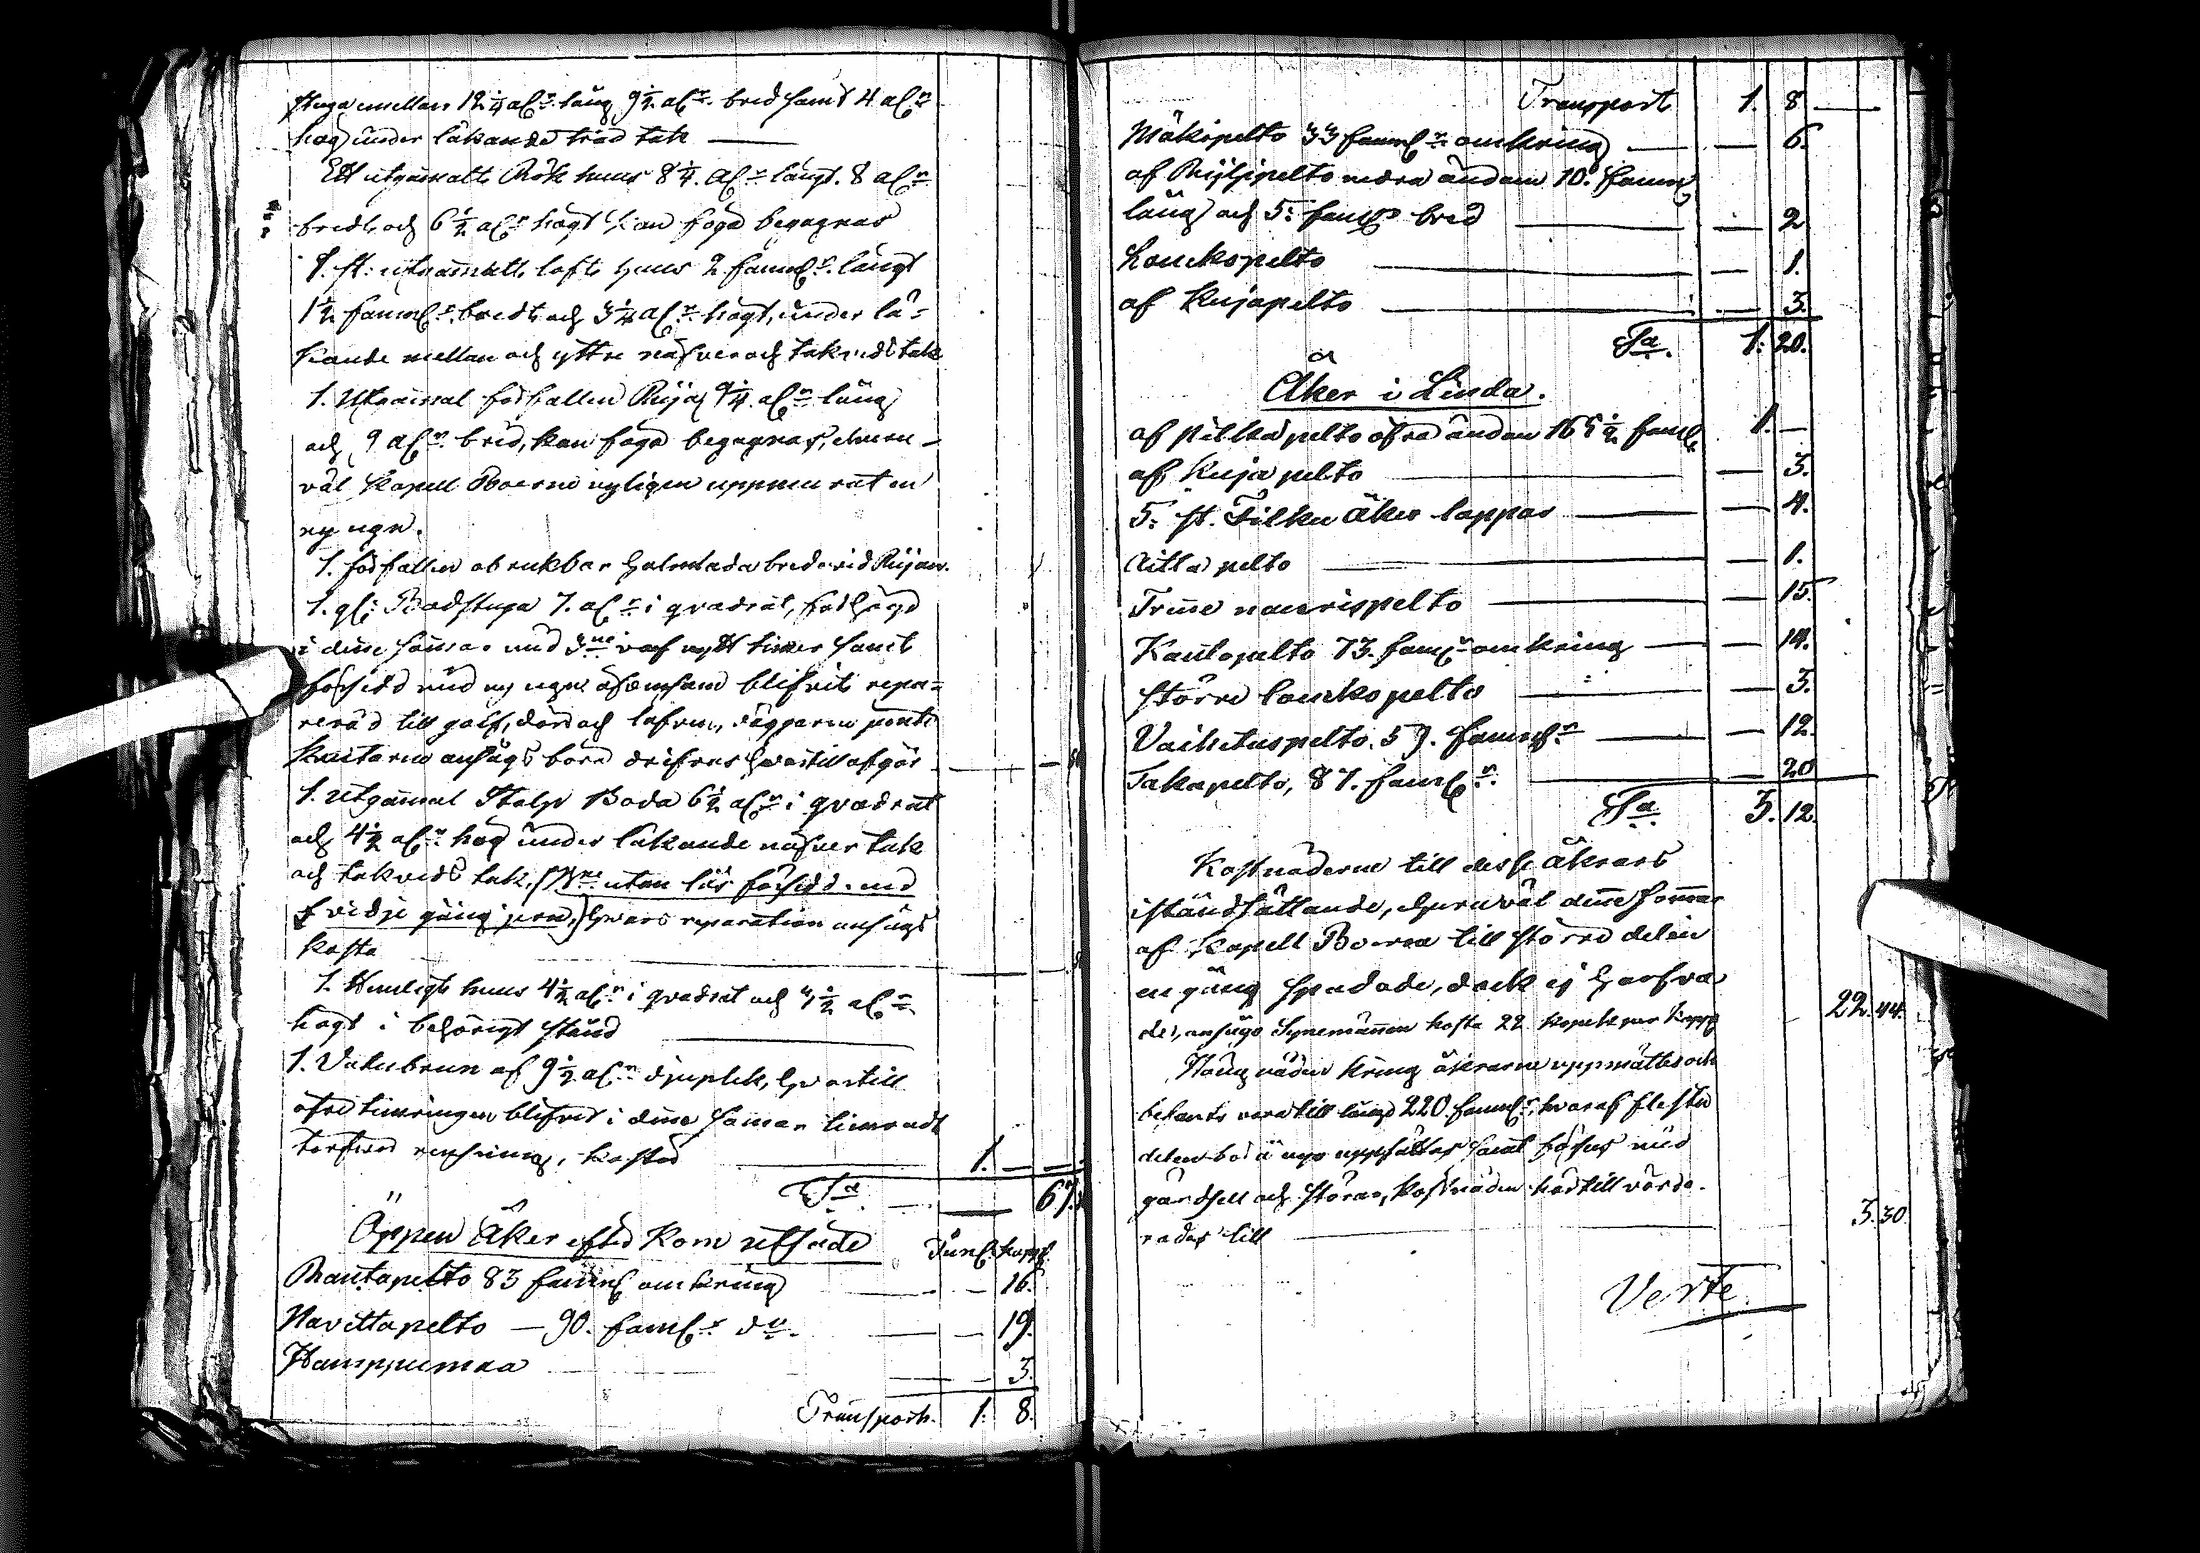 stuga emellan 12¼ aln. lång 9½ aln. bred samt 4 aln.
hög under läkande träd tak —
Ett utgammalt Rök huus 8¼. aln. långt. 8 aln.
bredt, och 6½ aln. högt kan föga begagnas
1. st: utgammalt lofts huus 2. famn. långt
1½ famn. bredt och 3¼ aln. högt, under lä-
kande mellan och yttre näfver och takveds tak
1. Utgammal förfallen Rija 9¼. aln. lång
och 9 aln. bred, kan föga begagnas, ehuru-
väl Kapell Boerne nyligen uppmurat en
ny ugn.
1. förfallen obrukbar Halmlada bredevid Rijan.
1. gl: Badstuga 7. aln. i qvadrat, förhögd
i denne sommar med 3ne varf nytt timer samt
försedd med ny ugn äfvensom blifvit repa-
rerad till golf, dörr och lafven,
knutarne ansågs böra drifvas hvartill åtgår
1. Utgammal Stolp Boda 6½ aln. i qvadrat
och 4½ aln. hög under läkande näfver tak
och takveds tak. utan lås försedd med
gång jern,) hvars reparation ansågs
kosta
1. Hemligt huus 4½ aln. i qvadrat och 4½ aln.
högt i behörigt stånd
1. Vatubrun af 9½ aln. djuplek, hvartill
öfre timringen blifvit i denne sommar timradt
tarfvar rensning, kostar 1. — —
Sa — 67.
Öppen Åker efter Korn utsäde Tunl. kappl.
Rantapelto 83 famnl omkring — 16.
Navettapelto — 90. famn. do. — — 19.
Hamppumaa — 3.
Transport. 1. 8.
Transport 1. 8 —
Mäkipelto 33 famn. omkring — — 6.
af Rijhipelto nedra ändan 10. famn
lång och 5. famn. bred — — 2
Louckopelto — — 1.
af Kujapelto — — 3.
Sa. 1. 20.
Åker i Linda.
af pelto öfra ändan 16 5½ famn 1. —
af Kuja pelto — — 3.
5. st. Tilku åker lappar — — 4.
Aitta pelto — — 1.
Trine naurispelto — — 15.
Kaulopelto 73. famn. omkring — — 14.
större louckopelto — — 3.
Vaihetuspelto. 57. famn. — — 12.
Takapelto, 87. famn. — 20
Sa. 3. 12.
Kostnaderne till desse åkrars
iståndsättande, ehuruväl denne sommar
af Kapell Boerna till större delen
en gång spadade, dock ej harfva-
de, ansågo Synemännen kosta 22 kopek per kapp 22. 44.
Hängnaden kring åkrarne uppmättes och
befants vara till längd 220. famn. hvaraf flesta
delen bör å nyo uppsättas samt förses med
gärdsell och störar, kostnaden härtill värde-
rades till — 3. 30.
Verte